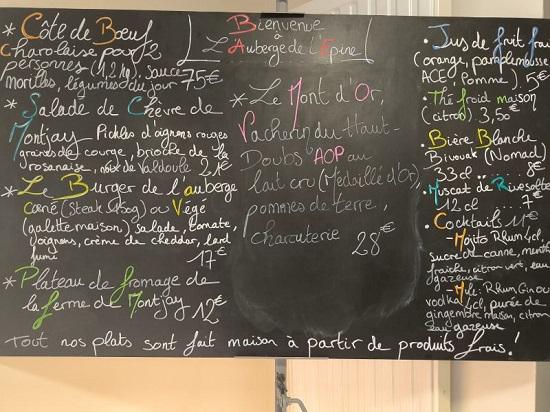 * Côte de Bœuf
Charolaise pour 2
personnes (1,2kg), sauce
morilles, légumes du jour 75€
* Salade de Chèvre de
Montjay - Pickles d'oignons rouges
graines de courge, brioche de la
rosanaise, noix de Valdoule 21€
* Le Burger de l'auberge
Carné (Steak 180g) ou Végé
(galette maison) salade, tomate,
oignons, crème de cheddar, lard
fumé 17€
* Plateau de fromage de
la ferme de Montjay 12€
Bienvenue
à
L'Auberge de l'Épine
* Le Mont d'Or,
Vacherin du Haut-
Doubs AOP au
lait cru (Médaillé d'Or),
pommes de terre,
charcuterie 28€
• Jus de fruit frais
(orange, pamplemousse
ACE, Pomme). 5€
• Thé froid maison
(citron). 3,50€
• Bière Blanche
Bivouak (Nomad)
33cl ...... 8€
• Muscat de Rivesaltes
12cl ....... 7€
• Cocktails 11€
- Mojito Rhum 4cl,
sucre de canne, menthe
fraiche, citron vert, eau
gazeuse
- Mule: Rhum, Gin ou
vodka 4cl, purée de
gingembre maison, citron
eau gazeuse
Tout nos plats sont fait maison à partir de produits frais!